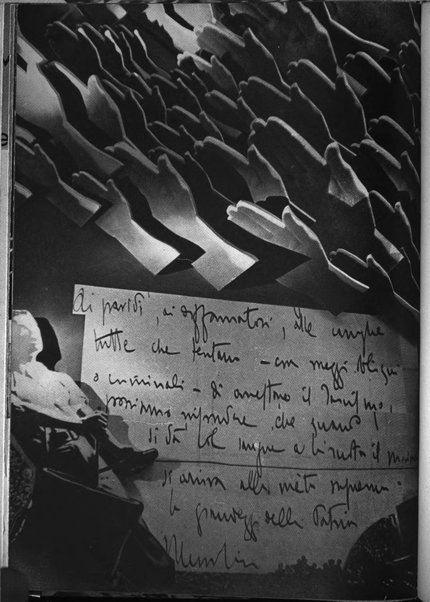 Ai pavidi, ai diffamatori, alle
tutte che tentano - con mezzi obliqui
o criminali - di arrestare il Fascismo,
possiamo rispondere che quando
si dà sangue
si arriva alla meta suprema:
la grandezza della Patria
Mussolini